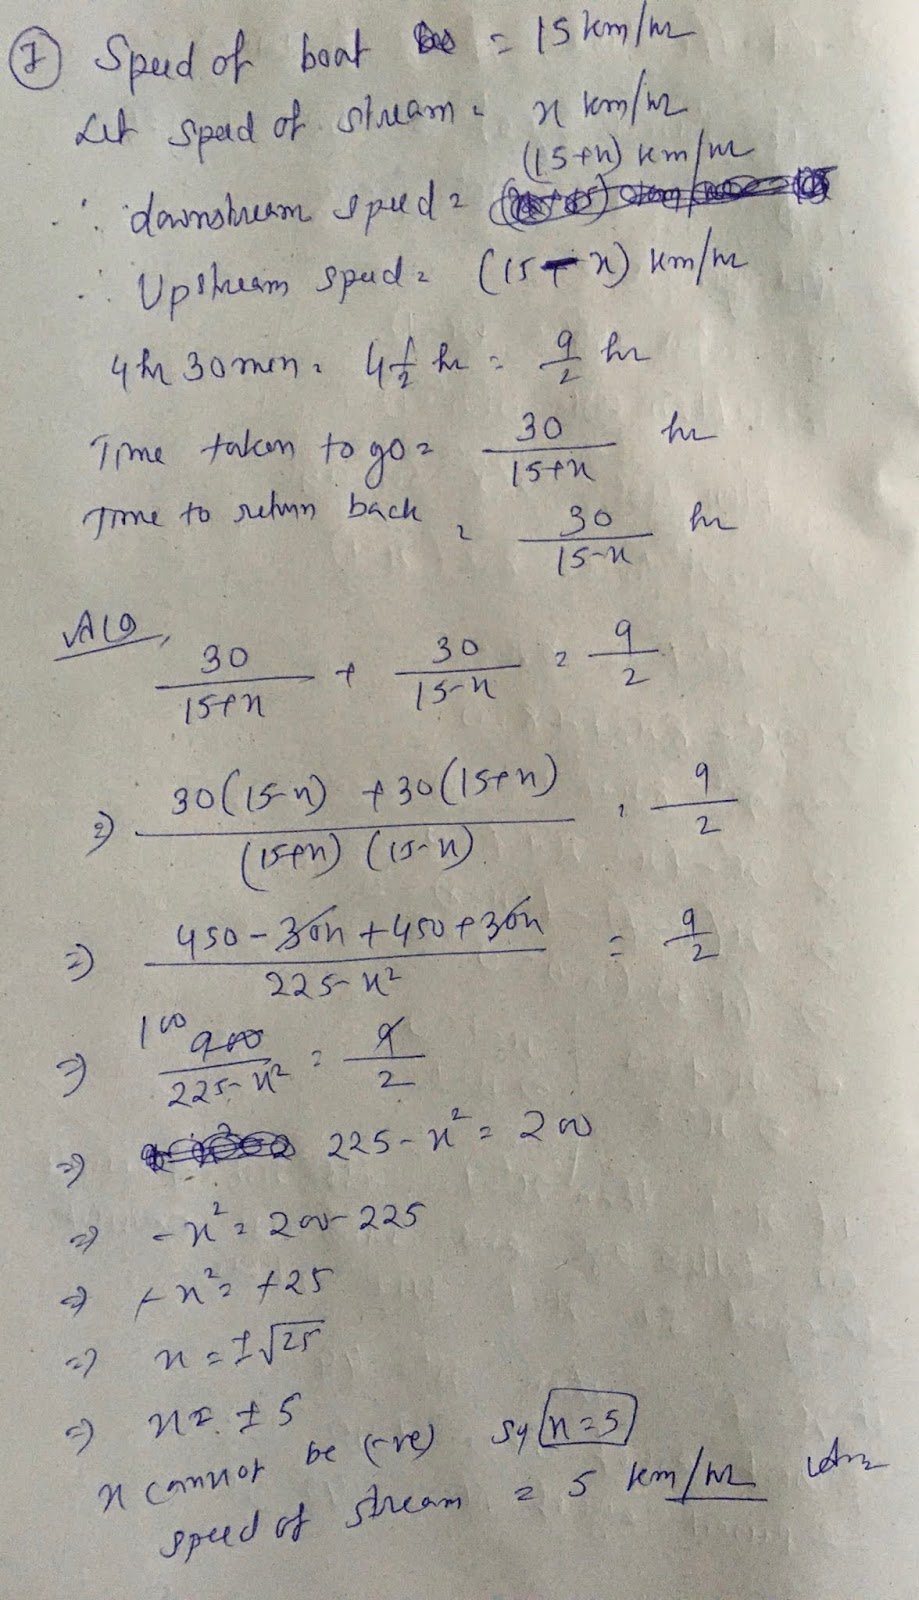 7 Speed of boat = 15 km/hr
Let speed of stream = x km/hr
(15+x) km/hr
∴ downstream speed =
∴ Upstream speed = (15-x) km/hr
4 hr 30 min = 4 1/2 hr = 9/2 hr
Time taken to go = 30/(15+x) hr
Time to return back = 30/(15-x) hr
30/(15+x) + 30/(15-x) = 9/2
⇒ (30(15-x) + 30(15+x))/((15+x) (15-x)) = 9/2
⇒ (450 - 30x + 450 + 30x)/(225-x²) = 9/2
100
⇒ 900/(225-x²) = 9/2
⇒ 225-x² = 200
⇒ -x² = 200-225
⇒ +x² = +25
⇒ x = ±√25
⇒ x = ±5
x cannot be (-ve) so, x=5
speed of stream = 5 km/hr Ans